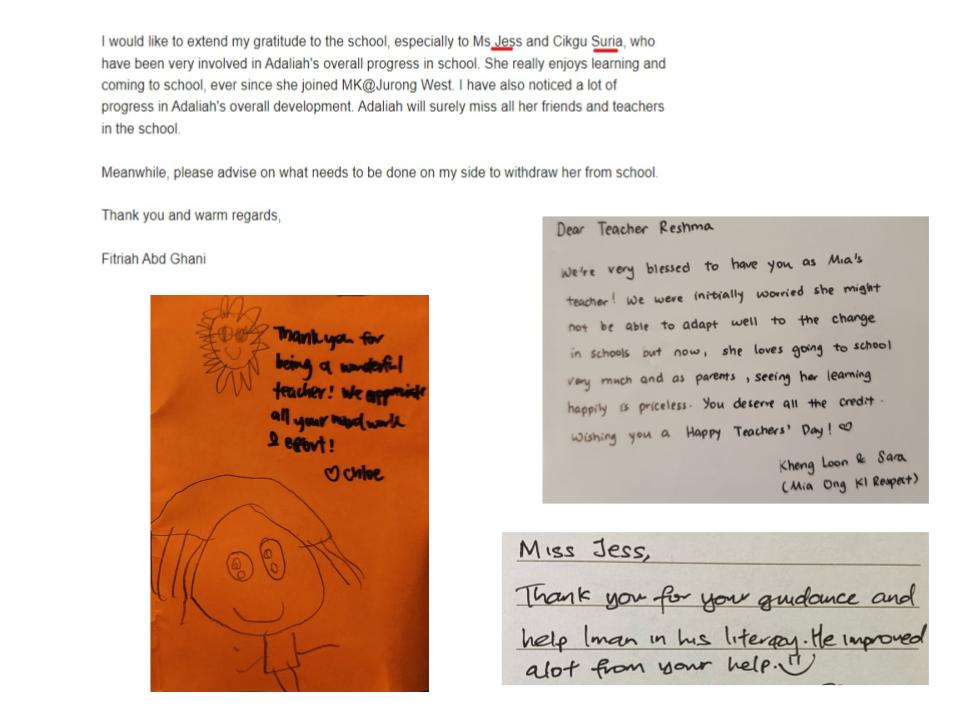 I would like to extend my gratitude to the school, especially to Ms Jess and Cikgu Suria, who
have been very involved in Adaliah's overall progress in school. She really enjoys learning and
coming to school, ever since she joined MK@Jurong West. I have also noticed a lot of
progress in Adaliah's overall development. Adaliah will surely miss all her friends and teachers
in the school.
Meanwhile, please advise on what needs to be done on my side to withdraw her from school.
Thank you and warm regards,
Fitriah Abd Ghani
Thank you for
being a wonderful
teacher! We appreciate
all your hard work
& effort!
♡ Chloe
Dear Teacher Reshma
We're very blessed to have you as Mia's
teacher! We were initially worried she might
not be able to adapt well to the change
in schools but now, she loves going to school
very much and as parents, seeing her learning
happily is priceless. You deserve all the credit.
Wishing you a Happy Teachers' Day! ♡
Kheng Loon & Sara
(Mia Ong K1 Respect)
Miss Jess,
Thank you for your guidance and
help Iman in his literacy. He improved
alot from your help.